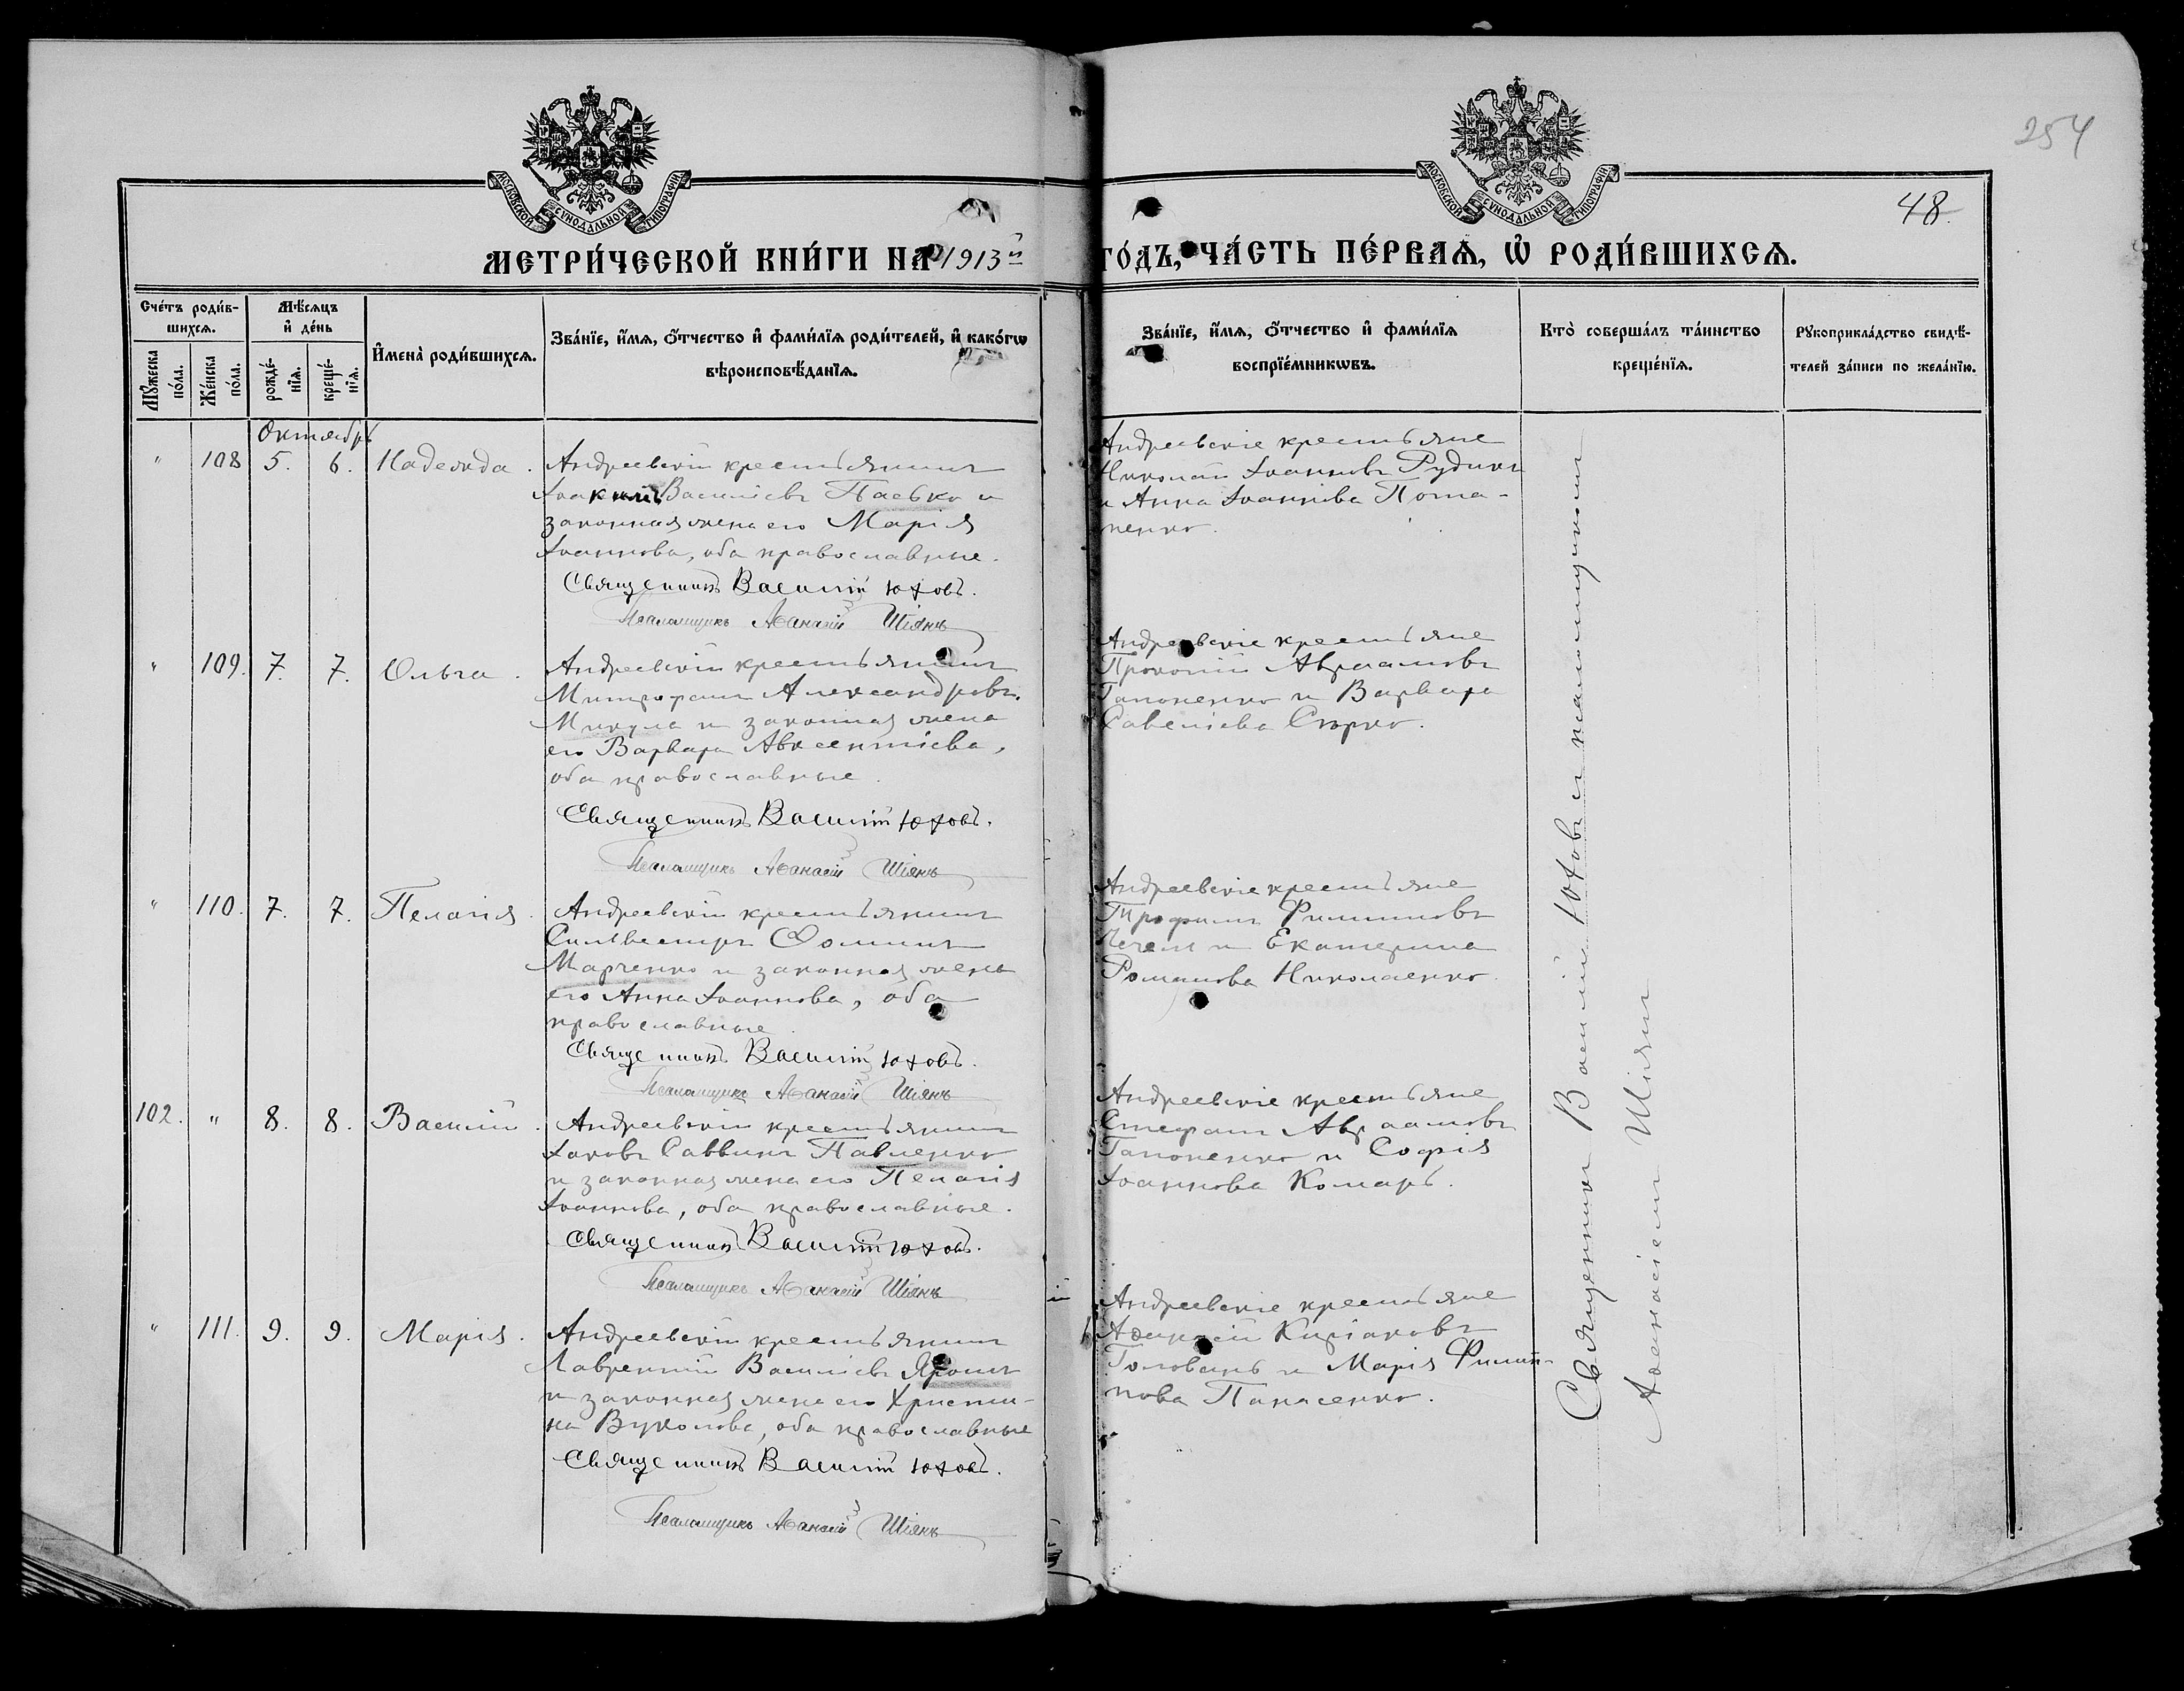 254
48
МОСКОВСКОЙ СѴНОДАЛЬНОЙ ТИПОГРАФІИ
МОСКОВСКОЙ СѴНОДАЛЬНОЙ ТИПОГРАФІИ
МЕТРИ́ЧЕСКОЙ КНИ́ГИ НА 1913й
ГО́ДЪ, ЧА́СТЬ ПЕ́РВАѦ, Ѡ҆ РОДИ́ВШИХСѦ.
Сче́тъ роди́в-
шихсѧ.
Мꙋ́жеска
по́ла.
Же́нска
по́ла.
Мѣ́сѧцъ
и҆ де́нь
рожде́-
нїѧ.
креще́-
нїѧ.
И҆мена̀ роди́вшихсѧ.
Зва́нїе, и҆́мѧ, ѻ҆́тчество и҆ фами́лїѧ роди́телей, и҆ како́гѡ
вѣроисповѣ́данїѧ.
Зва́нїе, и҆́мѧ, ѻ҆́тчество и҆ фами́лїѧ
воспрїе́мникѡвъ.
Кто̀ соверша́лъ та́инство
креще́нїѧ.
Рꙋкоприкла́дство свидѣ́-
телей за́писи по жела́нїю.
Октябрь
" 108 5. 6. Надежда.
Андреевскій крестьянинъ
Іоакимъ Василіевъ Пасько и
законная жена его Марія
Іоаннова, оба православные.
Священникъ Василій Юховъ.
Псаломщикъ Аѳанасій Шіянъ
Андреевскіе крестьяне
Николай Іоанновъ Рудикъ
и Анна Іоаннова Пота-
пенко.
" 109. 7. 7. Ольга.
Андреевскій крестьянинъ
Митрофанъ Александровъ
Микула и законная жена
его Варвара Авксентіева,
оба православные.
Священникъ Василій Юховъ.
Псаломщикъ Аѳанасій Шіянъ
Андреевскіе крестьяне
Прокопій Авраамовъ
Гапоненко и Варвара
Савеліева Сѣрко.
" 110. 7. 7. Пелагія.
Андреевскій крестьянинъ
Сильвестръ Ѳоминъ
Марченко и законная жена
его Анна Іоаннова, оба
православные.
Священникъ Василій Юховъ.
Псаломщикъ Аѳанасій Шіянъ
Андреевскіе крестьяне
Трофимъ Филипповъ
и Екатерина
Романова Николаенко.
102. " 8. 8. Василій.
Андреевскій крестьянинъ
Іаковъ Саввинъ Павленко
и законная жена его Пелагія
Іоаннова, оба православные.
Священникъ Василій Юховъ.
Псаломщикъ Аѳанасій Шіянъ
Андреевскіе крестьяне
Стефанъ Авраамовъ
Гапоненко и Софія
Іоаннова Комаръ.
" 111. 9. 9. Марія.
Андреевскій крестьянинъ
Лаврентій Василіевъ Ярошъ
и законная жена его Христи-
на Вуколова, оба православные
Священникъ Василій Юховъ.
Псаломщикъ Аѳанасій Шіянъ
Андреевскіе крестьяне
Киріаковъ
Головань и Марія Филип-
пова Панасенко.
Священникъ Василій Юховъ съ псаломщикомъ
Аѳанасіемъ Шіянъ